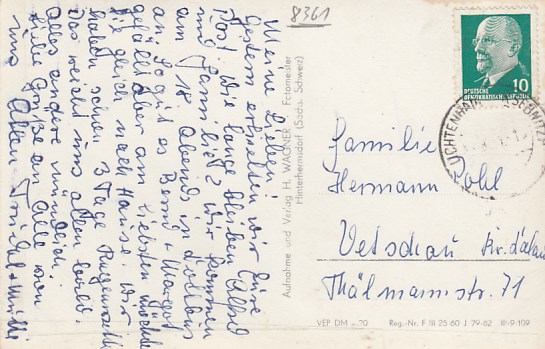 8361
Meine Lieben!
Gestern erhielten wir Eure
Post. Wie lange bleiben Alfred
und Hanni hier? Wir kommen
am 18. Abends in Cottbus
an. So gut es Bernd + Margot
gefällt aber am liebsten möchte
sie gleich nach Hause. Wir
haben schon 3 Tage Regenwetter
Das weicht uns allen bald.
Alles andere mündlich.
Liebe Grüße an Alle von
uns Allen
Aufnahme und Verlag H. WAGNER Fotomeister
Hinterhermsdorf (Sächs. Schweiz)
10
DEUTSCHE
DEMOKRATISCHE REPUBLIK
LICHTENHAIN
Familie
Hermann
Vetschau Kr. Calau
Thälmannstr. 71
VEP DM -.20 Reg.-Nr. F III 25 60 J 79-62 III-9-109